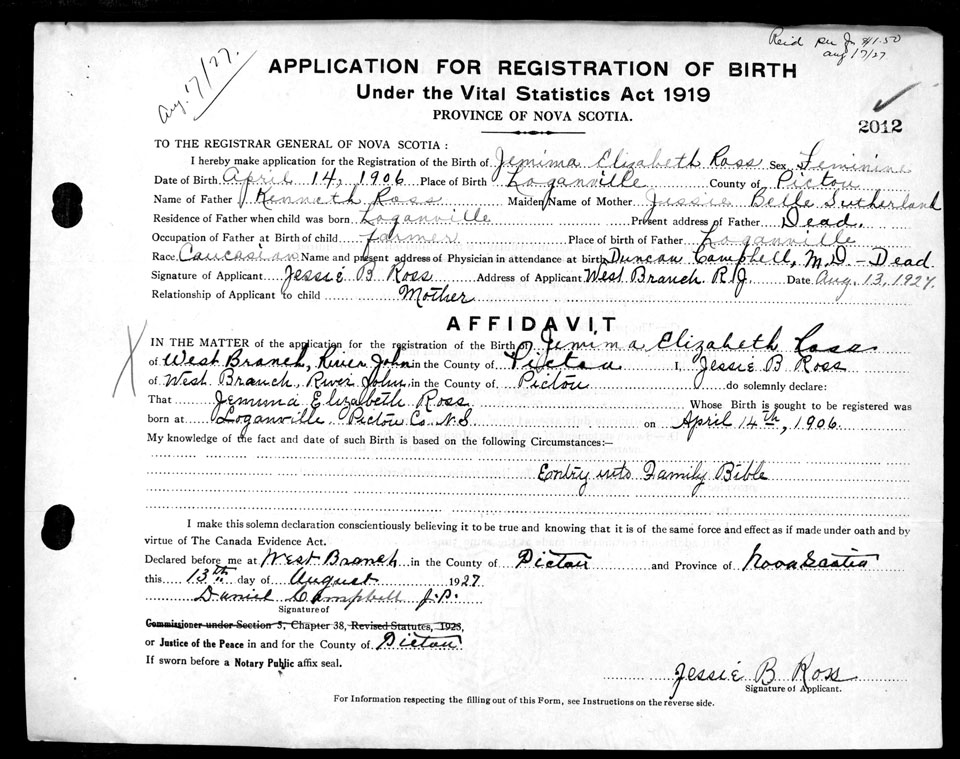 Reid per J. $1.50
Aug 17/27
Aug. 17/27.
APPLICATION FOR REGISTRATION OF BIRTH
Under the Vital Statistics Act 1919
PROVINCE OF NOVA SCOTIA.
2012
TO THE REGISTRAR GENERAL OF NOVA SCOTIA :
I hereby make application for the Registration of the Birth of Jemima Elizabeth Ross Sex Feminine
Date of Birth April 14, 1906 Place of Birth Loganville County of Pictou
Name of Father Kenneth Ross Maiden Name of Mother Jessie Belle Sutherland
Residence of Father when child was born Loganville Present address of Father Dead.
Occupation of Father at Birth of child farmer Place of birth of Father Loganville
Race Caucasian Name and present address of Physician in attendance at birth Duncan Campbell, M.D - Dead
Signature of Applicant Jessie B Ross Address of Applicant West Branch R.J. Date Aug. 13, 1927.
Relationship of Applicant to child Mother
AFFIDAVIT
IN THE MATTER of the application for the registration of the Birth of Jemima Elizabeth Ross
of West Branch, River John in the County of Pictou I, Jessie B Ross
of West Branch, River John, in the County of Pictou do solemnly declare:
That Jemima Elizabeth Ross Whose Birth is sought to be registered was
born at Loganville Pictou Co. N.S. on April 14th, 1906.
My knowledge of the fact and date of such Birth is based on the following Circumstances:—
Entry into Family Bible
I make this solemn declaration conscientiously believing it to be true and knowing that it is of the same force and effect as if made under oath and by
virtue of The Canada Evidence Act.
Declared before me at West Branch in the County of Pictou and Province of Nova Scotia
this 13th day of August 1927
Daniel Campbell J.P.
Signature of
Commissioner under Section 3, Chapter 38, Revised Statutes, 1923,
or Justice of the Peace in and for the County of Pictou
If sworn before a Notary Public affix seal.
Jessie B Ross
Signature of Applicant.
For Information respecting the filling out of this Form, see Instructions on the reverse side.